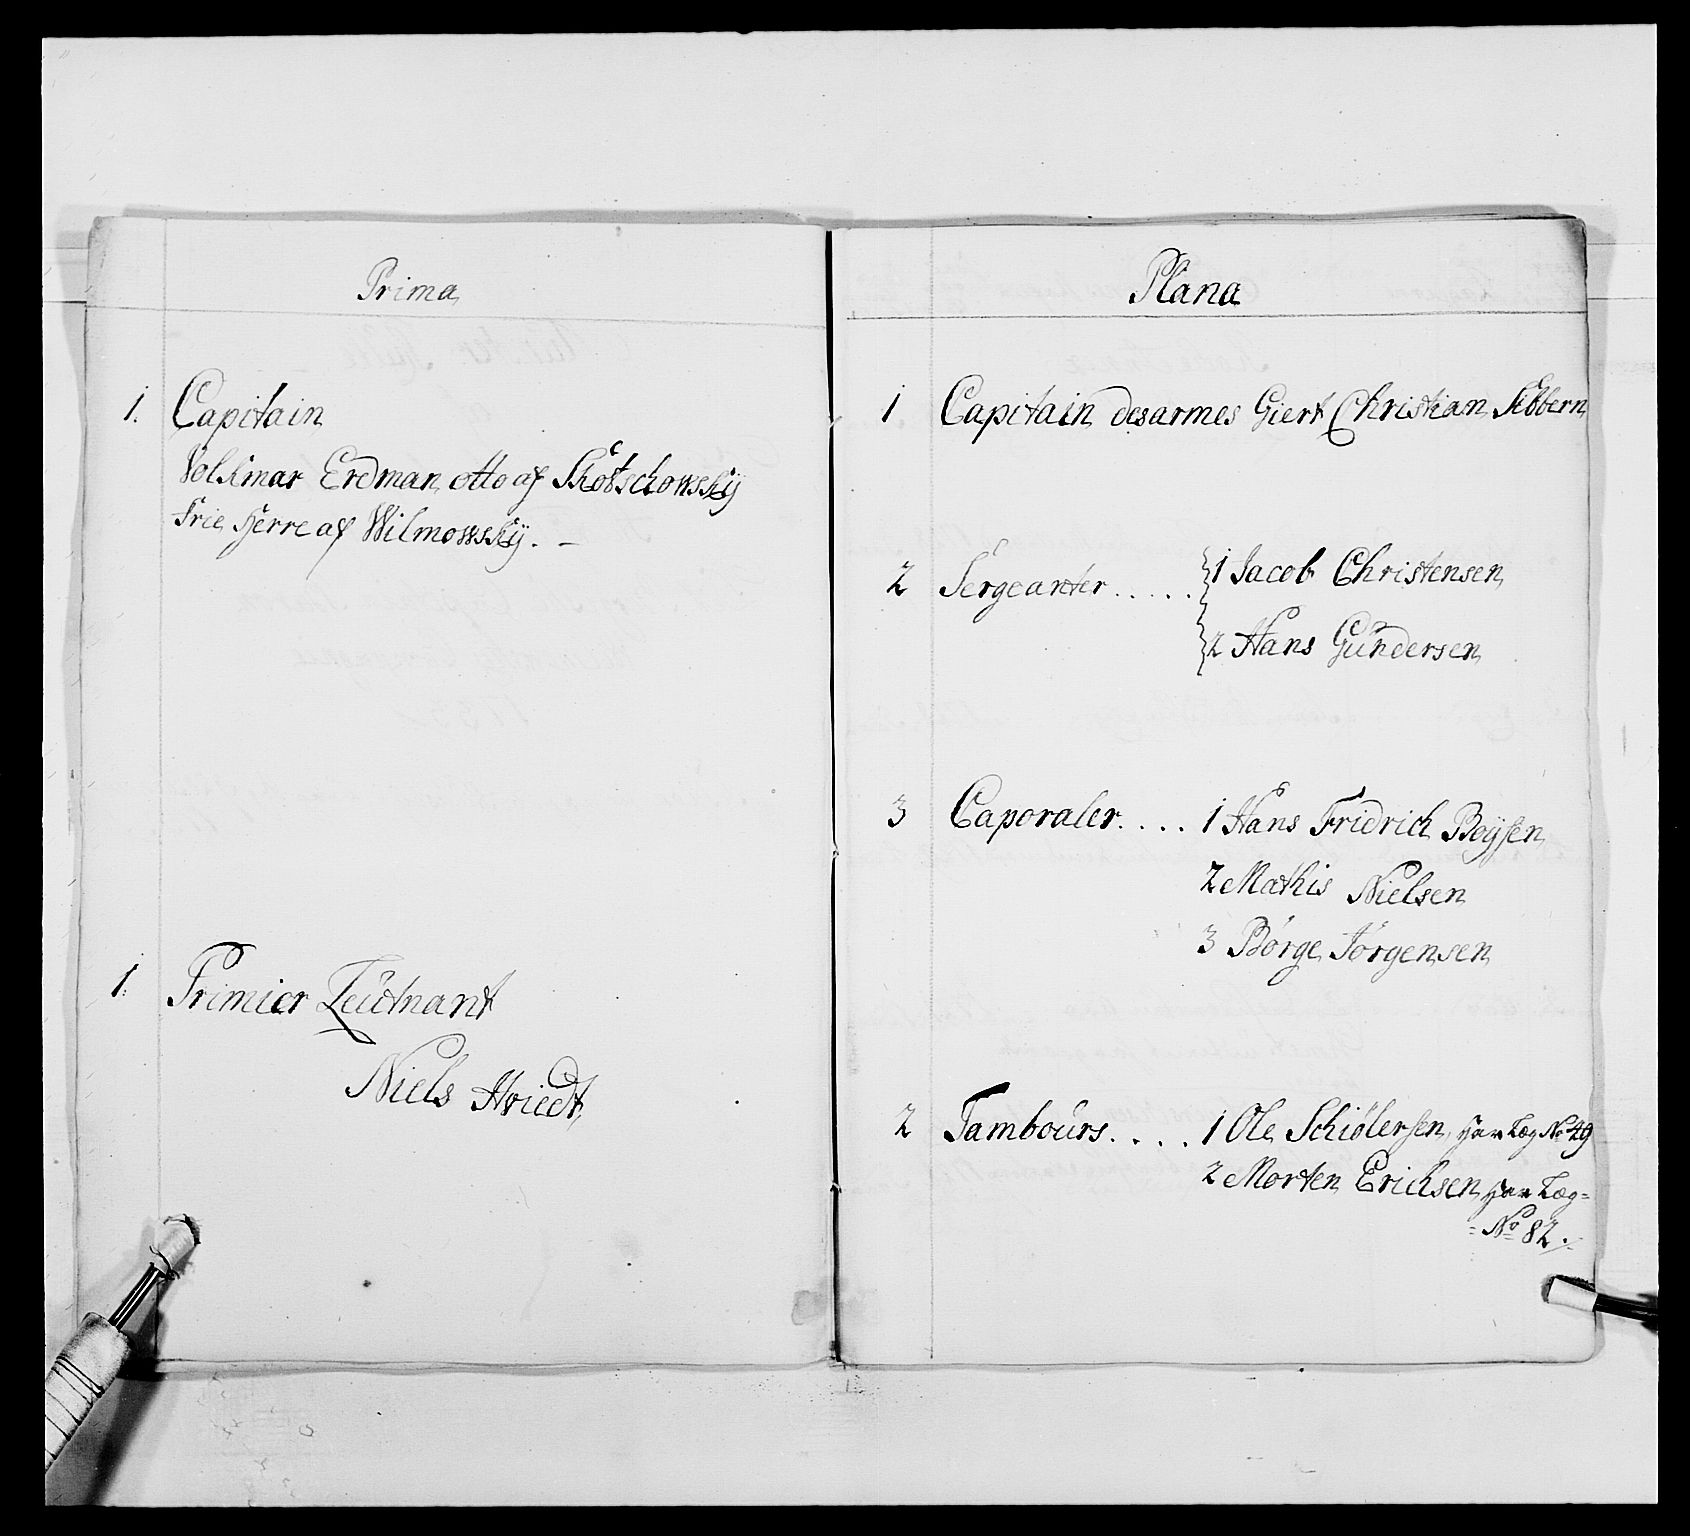 Prima
1. Capitain
Volkmar Erdman otto af Skotschowskÿ
Frie Herre af Wilmowskÿ. –
1. Primier Leutnant
Niels Hviedt
Plana
1 Capitain desarmes Giert Christian Sebbern
2 Sergeanter ..... 1 Jacob Christensen
2 Hans Gundersen
3 Caporaler .... 1 Hans Fridrich Boÿsen
2 Mathis Nielsen
3 Børge Jörgensen
2 Tambours .... 1 Ole Schiølersen, har Læg No 49
2 Morten Erichsen har Læg=
=No 82.